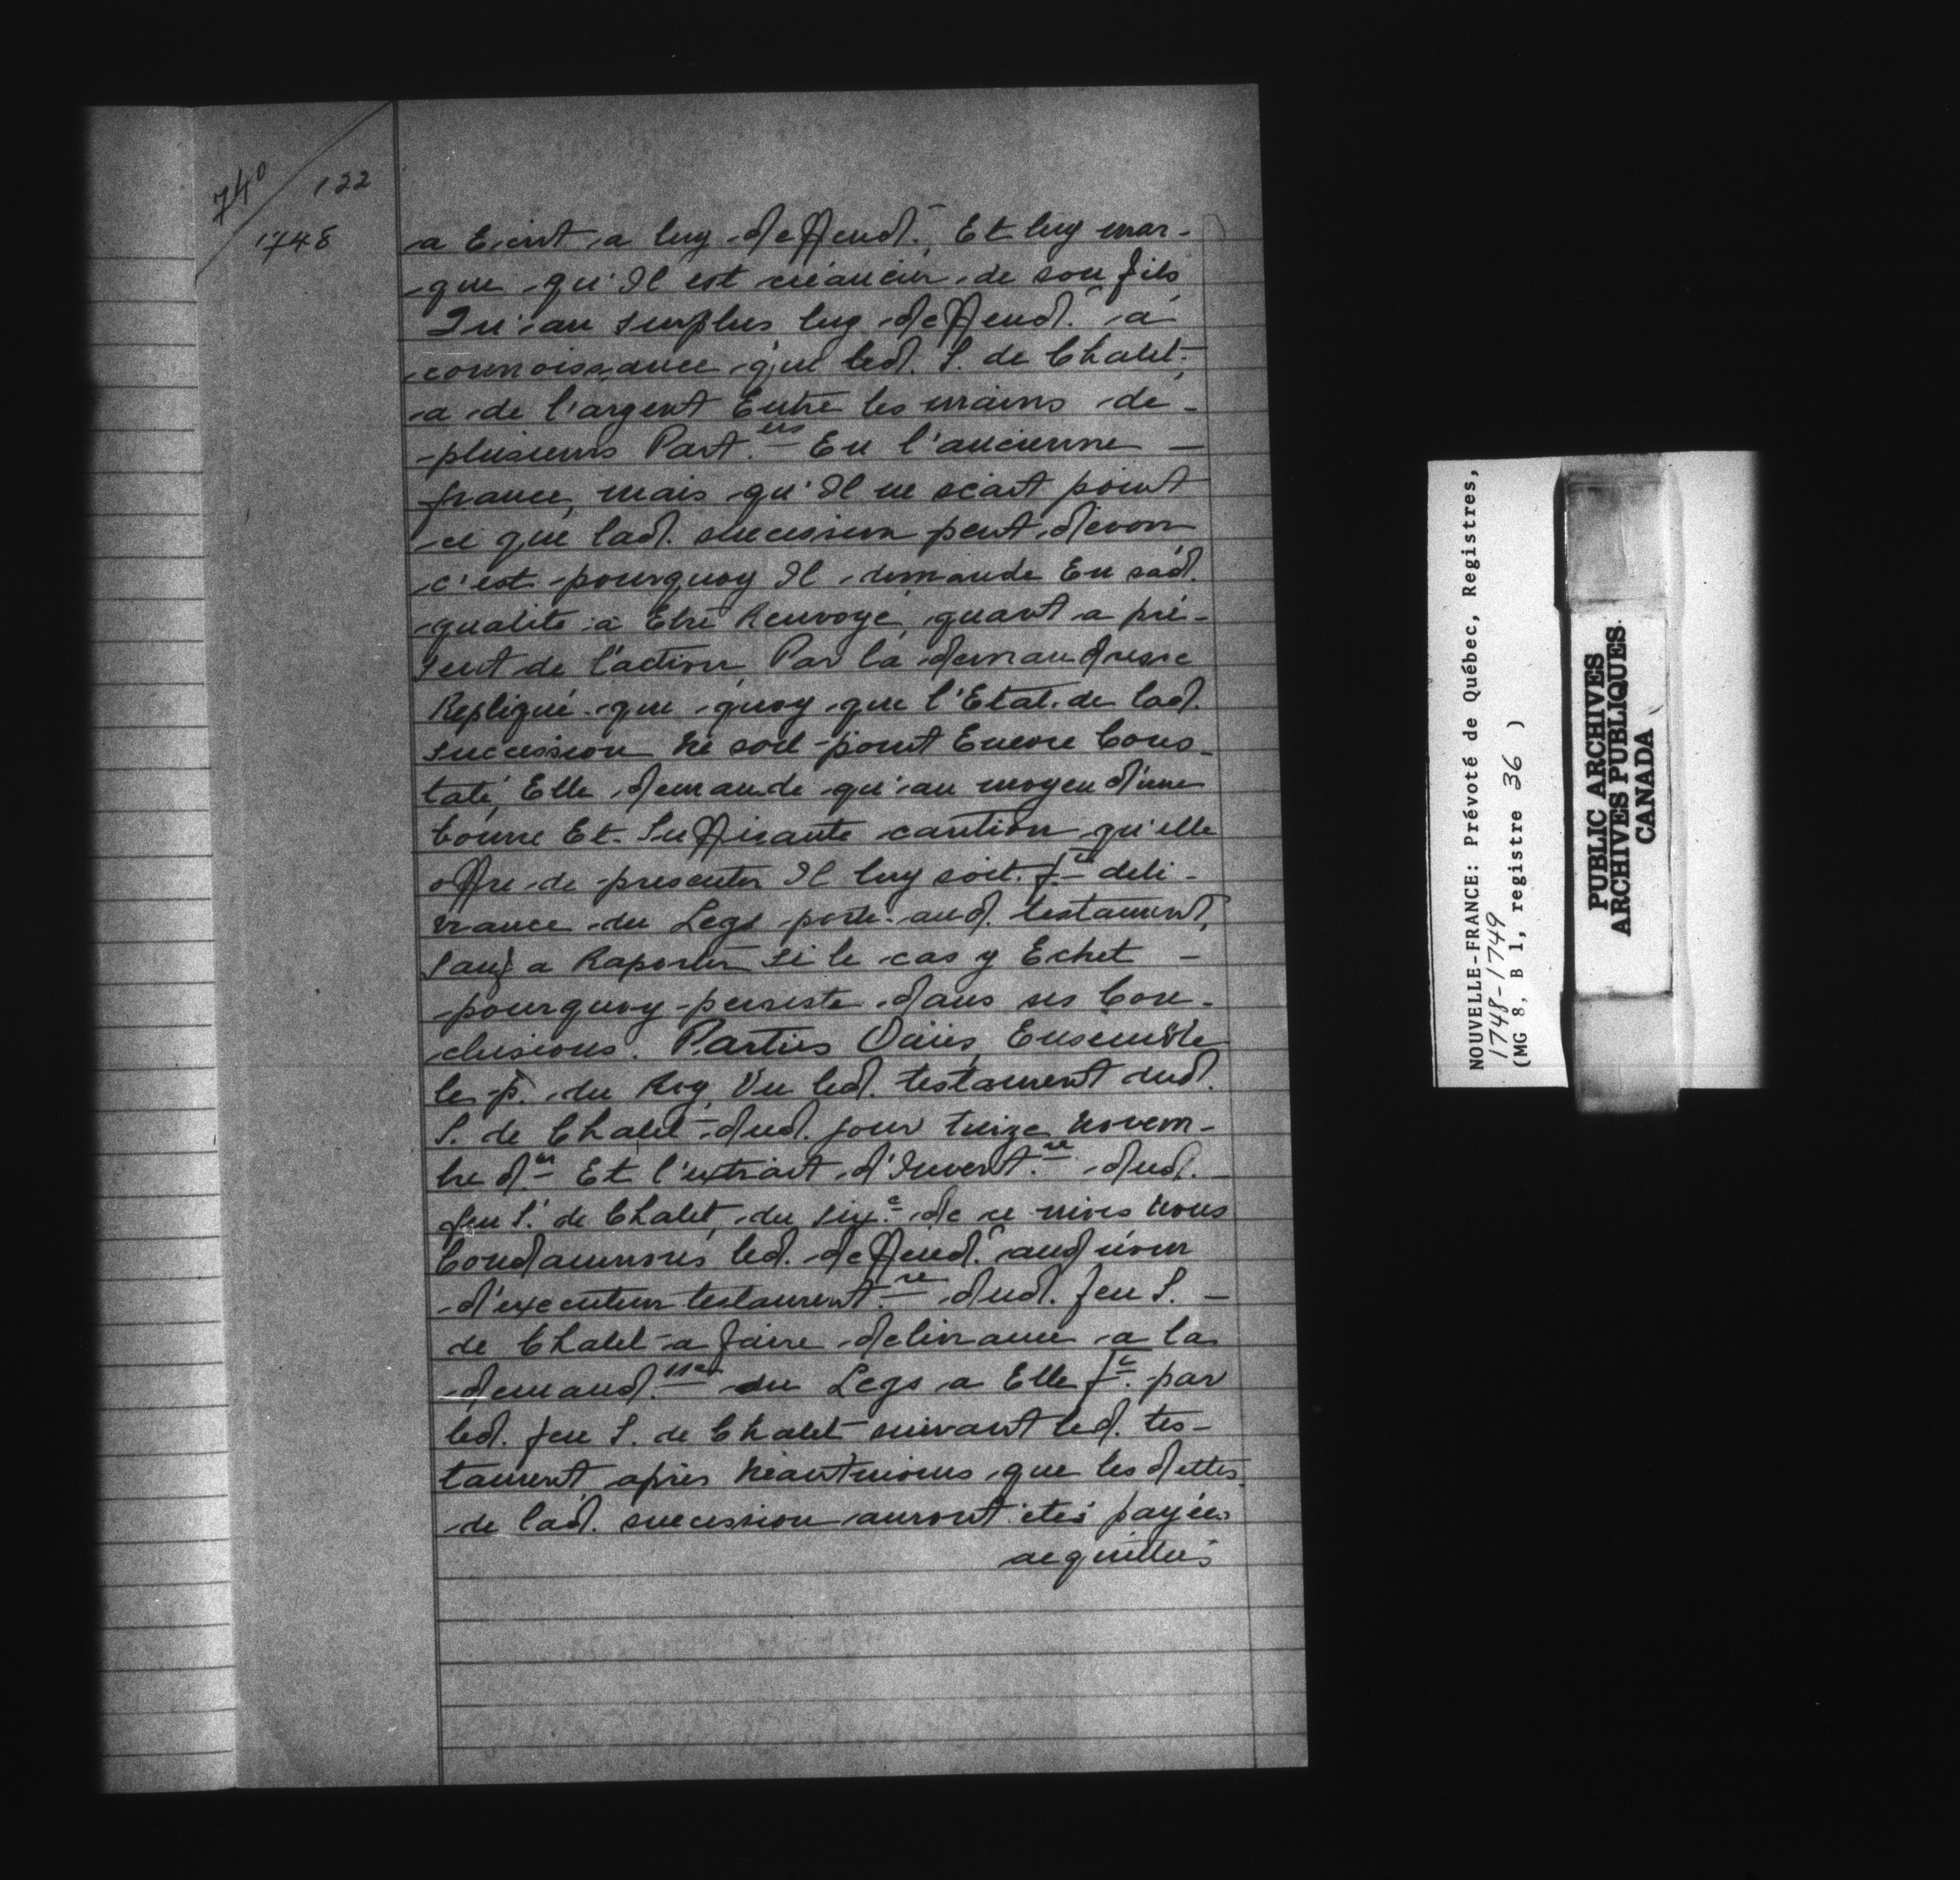 740
122
1748
a Ecrit a luy deffend.r Et luy mar-
que qu'Il est créancier de son fils
Qu'au surplus luy deffend.r a
connoissance que led. S. de Chalet
a de l'argent Entre les mains de
plusieurs Part.ers En l'ancienne
france, mais qu'Il ne scait point
ce que lad. succession peut devoir
c'est pourquoy Il demande En sad.
qualité a Etre Renvoyé quant a pré-
sent de l'action, Par la demandresse
Repliqué que quoy que l'Etat de lad.
succession Ne soit point Encore Cons-
taté, Elle demande qu'au moyen d'une
bonne Et Suffisante caution qu'elle
offre de presenter Il luy soit f.t deli-
vrance du Legs porté aud. testament,
Sauf a Raporter si le cas y Echet -
pourquoy persiste dans ses Con-
clusions. Parties Oüies, Ensemble
le p. du Roy, Vu led. testament dud.
S. de Chalet dud. jour treize Novem-
bre d.er Et l'extrait d'Invent.re dud.
feu S. de Chalet du six.e de ce mois Nous
Condamnons led. deffend.r aud nom
d'executeur testament.re dud. feu S. -
de Chalet a faire delivrance a la
demand.sse du Legs a Elle f.t par
led. feu S. de Chalet suivant led. tes-
tament, après Néantmoins que les dettes
de lad. succession auront étés payées
acquittées
NOUVELLE-FRANCE: Prévoté de Québec, Registres,
1748-1749
(MG 8, B 1, registre 36 )
PUBLIC ARCHIVES
ARCHIVES PUBLIQUES
CANADA